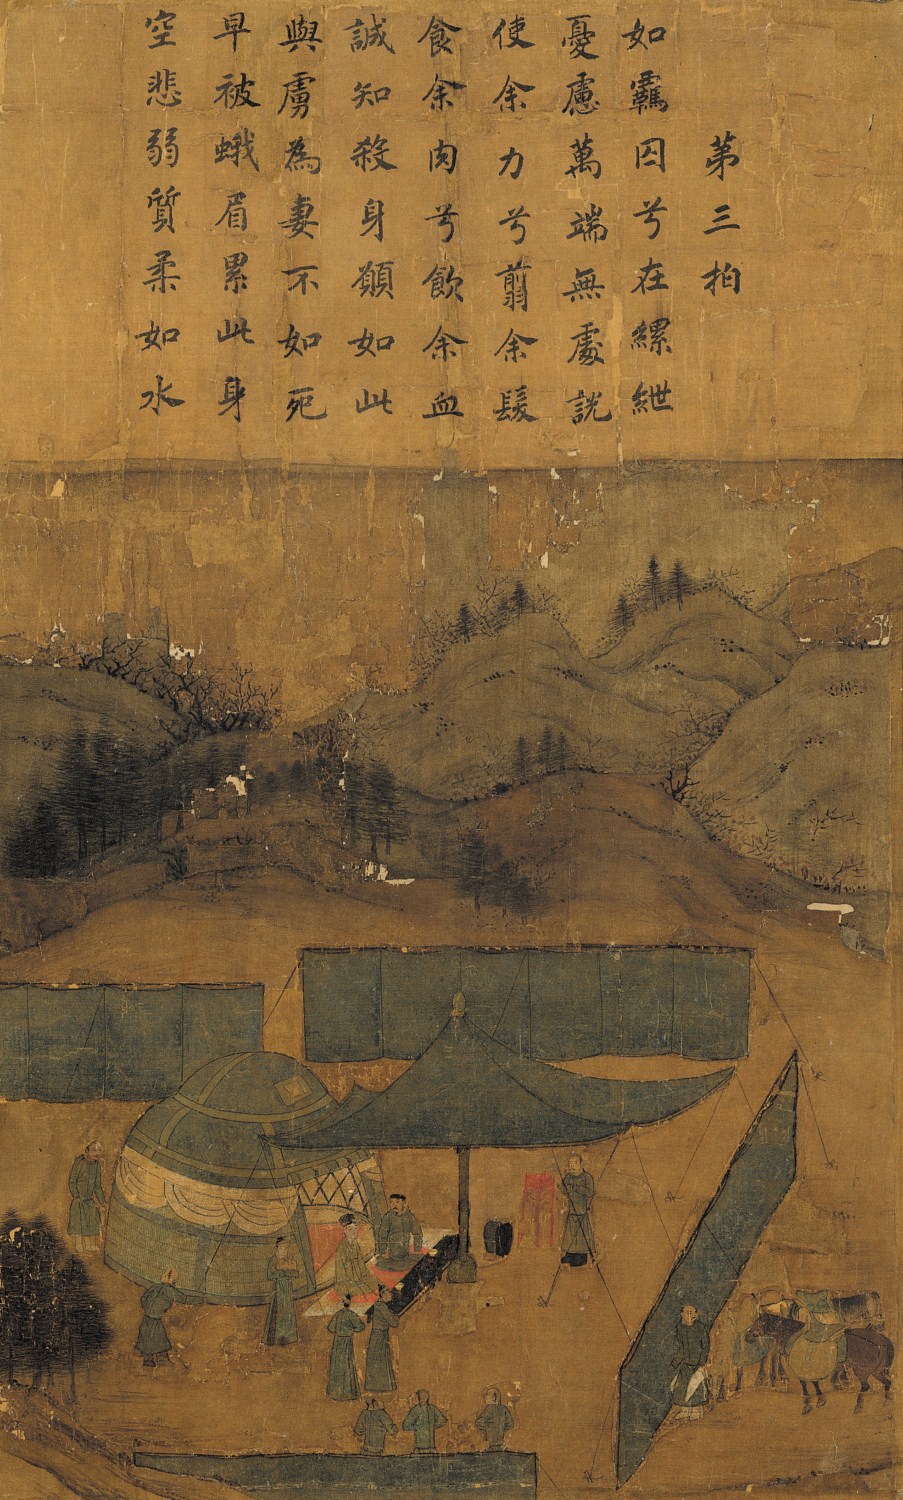 第三拍
如羈囚兮在縲紲
憂慮萬端無處説
使余力兮翦余髮
食余肉兮飲余血
誠知殺身願如此
與虜為妻不如死
早被蛾眉累此身
空悲弱質柔如水